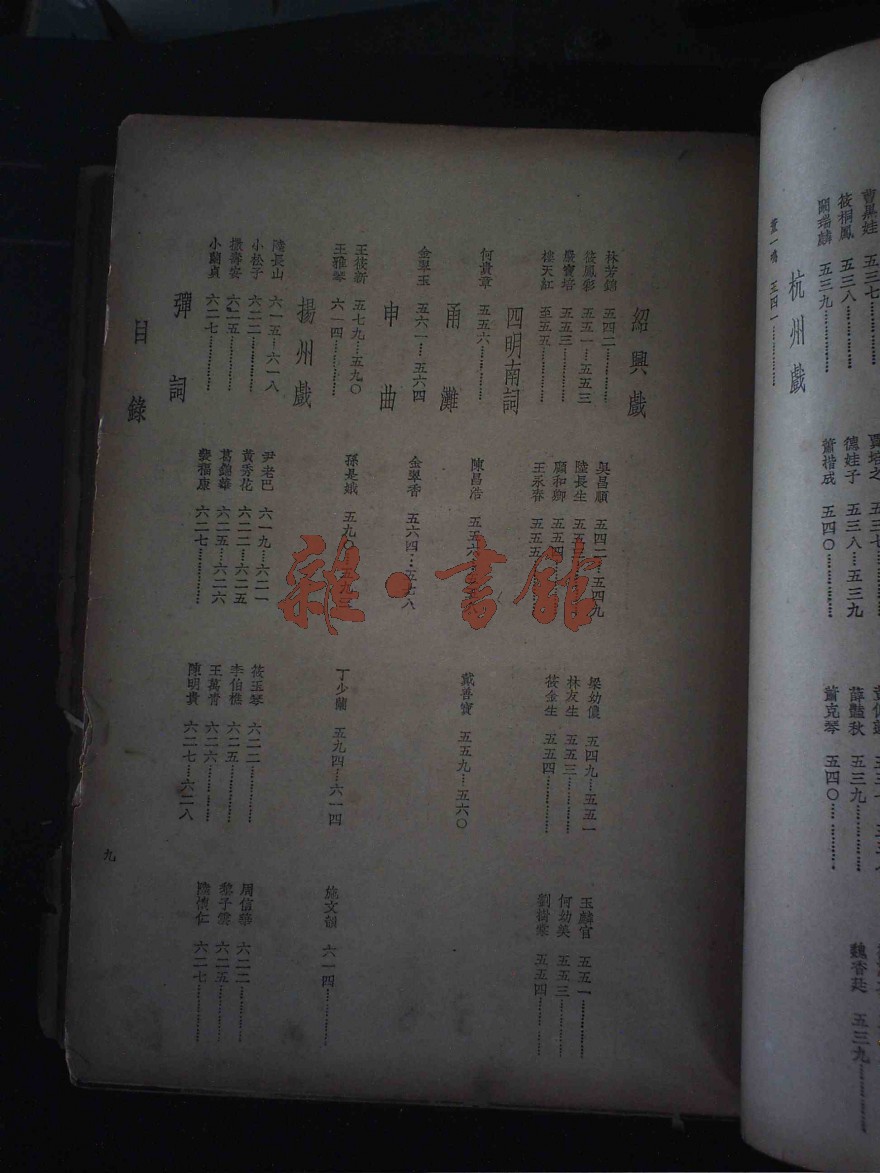 杭州戲
筱桐鳳 五三八
德娃子 五三八…五三九
薛豔秋 五三九
魏香廷 五三九
蕭楷成 五四〇
蕭克琴 五四〇
紹興戲
林芳錦 五四二
吳昌順 五四二…五四九
梁幼儂 五四九…五五一
玉麟官 五五一
筱鳳彩 五五一…五五三
陸長生
林友生 五五三
何幼美 五五三
嚴寶培 五五三
顧和卿 五五四
筱金生 五五四
劉樹棠 五五四
樓天紅 五五五
王永春 五五五
四明南詞
何貴章 五五六
陳昌浩 五五六
戴善寶 五五九…五六〇
甬灘
金翠玉 五六一…五六四
金翠香 五六四…五七八
申曲
王筱新 五七九…五九〇
孫是娥 五九〇
丁少蘭 五九四…六一四
施文韻 六一四
王雅琴 六一四
揚州戲
陸長山 六一五…六一八
尹老巴 六一九…六二一
筱玉琴 六二二
周信華 六二二
小松子 六二二
黃秀花 六二二…六二五
李伯樵 六二五
黎子雲 六二五
振壽安 六二五
葛錦華 六二五…六二六
王萬青 六二六
陸懷仁 六二七
小蘭貞 六二七
裴福康 六二七
陳明貴 六二七…六二八
彈詞
目錄
九
雜·書館